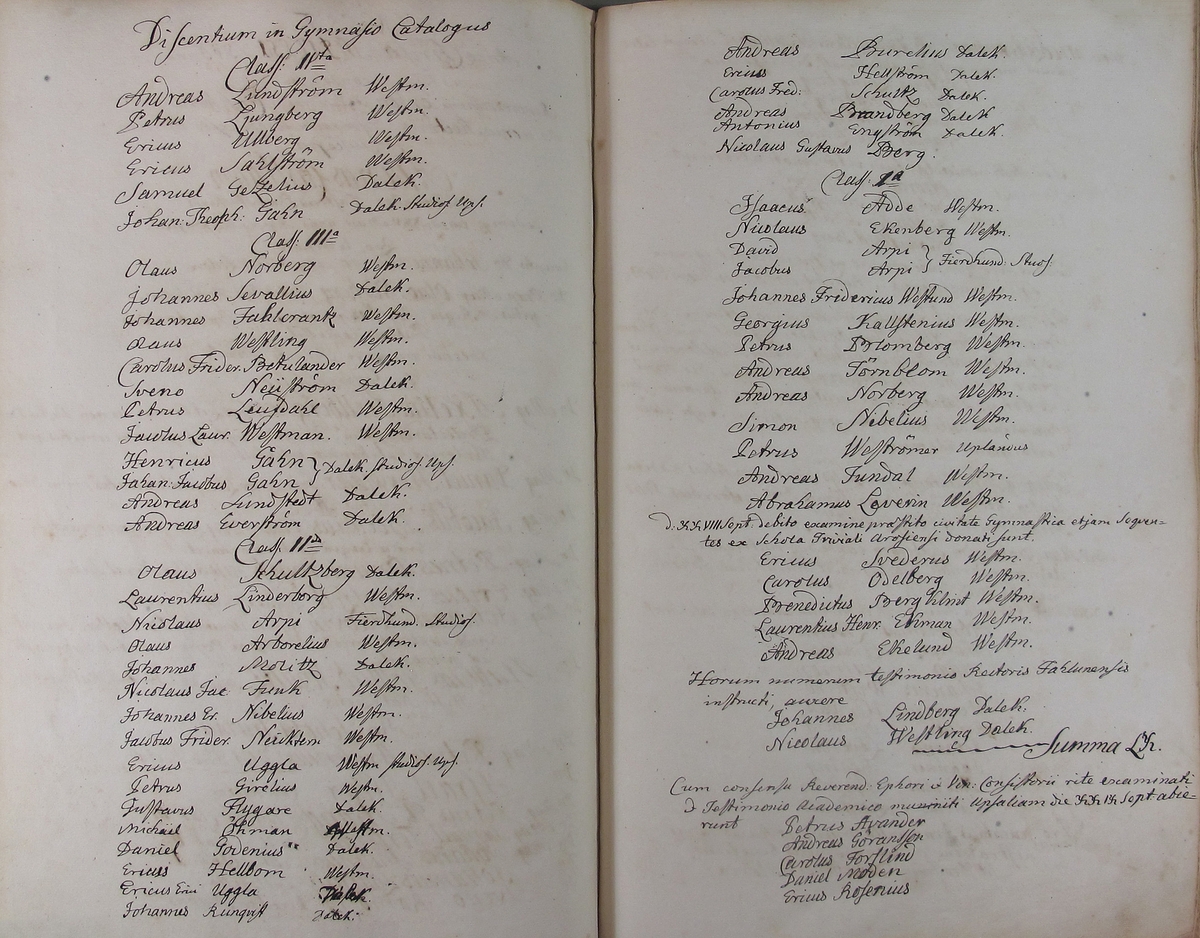 Discentium in Gymnasio Catalogus
Class: IVta
Andreas Lundström Westm.
Petrus Ljungberg Westm.
Ericus Ullberg Westm.
Ericus Sahlström Westm.
Samuel Gezelius Dalek.
Johan: Theoph: Gahn Dalek. Studios. Ups.
Class: IIIa
Olaus Norberg Westm.
Johannes Sevallius Dalek.
Johannes Fahlcrantz Westm.
Olaus Westling Westm.
Carolus Frider. Betulander Westm.
Sveno Neüström Dalek.
Petrus Leufdahl Westm.
Jacobus Laur. Westman. Westm.
Henricus Gahn } Dalek. Studios. Ups.
Johan: Jacobus Gahn
Andreas Lundstedt Dalek.
Andreas Everström Dalek.
Class: IIda
Olaus Schultzberg Dalek.
Laurentius Linderborg Westm.
Nicolaus Arpi Fierdhund. Studios.
Olaus Arborelius Westm.
Johannes Molitz Dalek.
Nicolaus Jac. Funk Westm.
Johannes Er. Nibelius Westm.
Jacobus Frider. Westm.
Ericus Uggla Westm Studios. Ups.
Petrus Girelius Westm.
Gustavus Flygare Dalek.
Michael Öhman Westm.
Daniel Godenius Dalek.
Ericus Hellbom Westm.
Ericus Eric Uggla Dalek.
Johannes Runqvist Dalek.
Andreas Burelius Dalek.
Ericus Hellström Dalek.
Carolus Fred: Schultz Dalek.
Andreas Brandberg Dalek
Antonius Engström Dalek.
Nicolaus Gustavus Berg.
Class: Ia
Isaacus Adde Westm.
Nicolaus Ekenberg Westm.
David Arpi } Fierdhund. Stuos:
Jacobus Arpi
Johannes Fridericus Westlund Westm.
Georgius Kallstenius Westm.
Petrus Blomberg Westm.
Andreas Törnblom Westm.
Andreas Norberg Westm.
Simon Nibelius Westm.
Petrus Weströmer Uplandus
Andreas Fundal Westm.
Abrahamus Leverin Westm.
d. XXVIII Sept. debito examine præstito civitate Gymnastica etjam Sequen-
tes ex Schola Triviali Arosiensi donati sunt.
Ericus Svederus Westm.
Carolus Odelberg Westm.
Benedictus Bergholmt Westm.
Laurentius Henr. Ekman Westm.
Andreas Ekelund Westm.
Horum numerum testimonio Rectoris Fahlunensis
instructi, auxere
Johannes Lindberg Dalek.
Nicolaus Westling Dalek.
Summa LX.
Cum consensu Reverend. Ephori & Ven: Consistorii rite examinati
& Testimonio Academico muniti Upsaliam die XXIX Sept abie-
runt
Petrus Avander
Andreas Göransson
Carolus Forslind
Daniel Moden
Ericus Rosenius